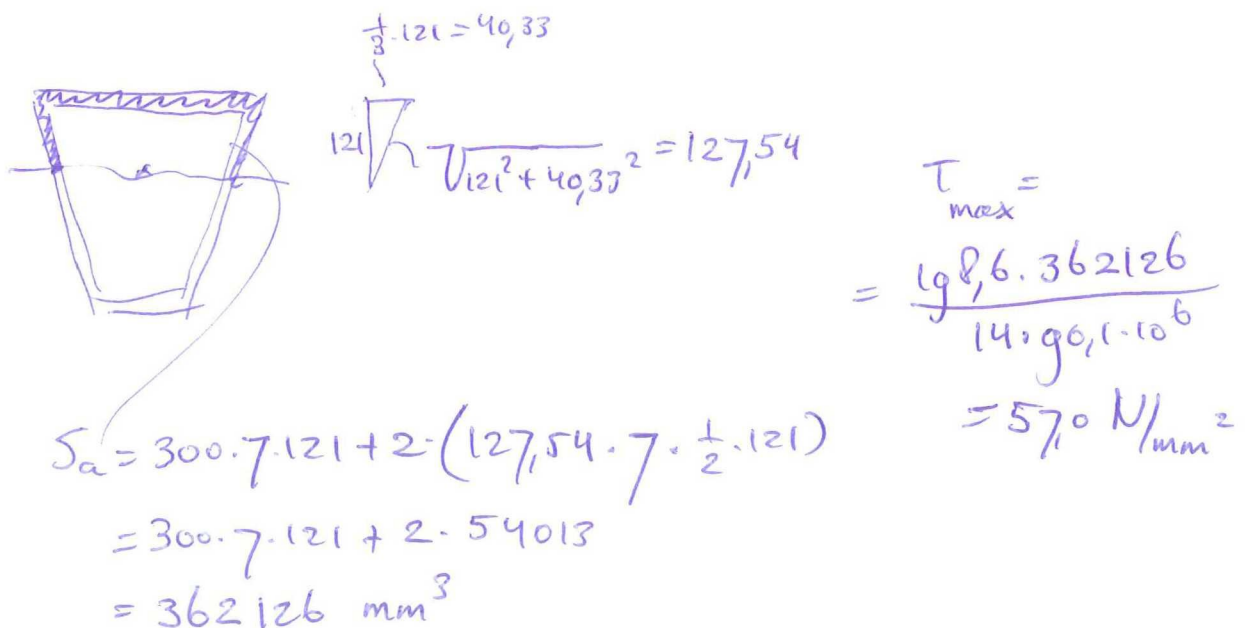 1/3 · 121 = 40,33
121
√(121² + 40,33²) = 127,54
τmax =
= 198,6 · 362126 / 14 · 90,1 · 10⁶
= 57,0 N/mm²
Sa = 300 · 7 · 121 + 2 · (127,54 · 7 · 1/2 · 121)
= 300 · 7 · 121 + 2 · 54013
= 362126 mm³